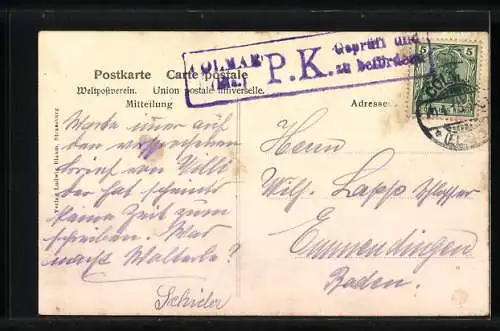 COLMAR
(Els.)
P.K.
Geprüft und
zu befördern
Postkarte Carte postale
Weltpostverein. Union postale universelle.
Mitteilung
Adresse
5 5
COLMAR
Warte imer auf
den versprochenen
brief von Willi
der hat scheints
keine Zeit zum
schreiben. Was
macht Walterle?
Herrn
Wilh. Lapp
Emmendingen
Baden.
Verlag Ludwig, Strassburg